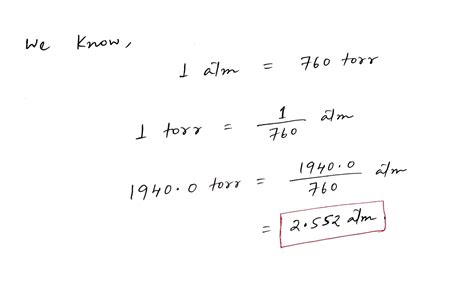 We Know,
1 atm = 760 torr
1 torr = 1/760 atm
1940.0 torr = 1940.0/760 atm
= 2.552 atm